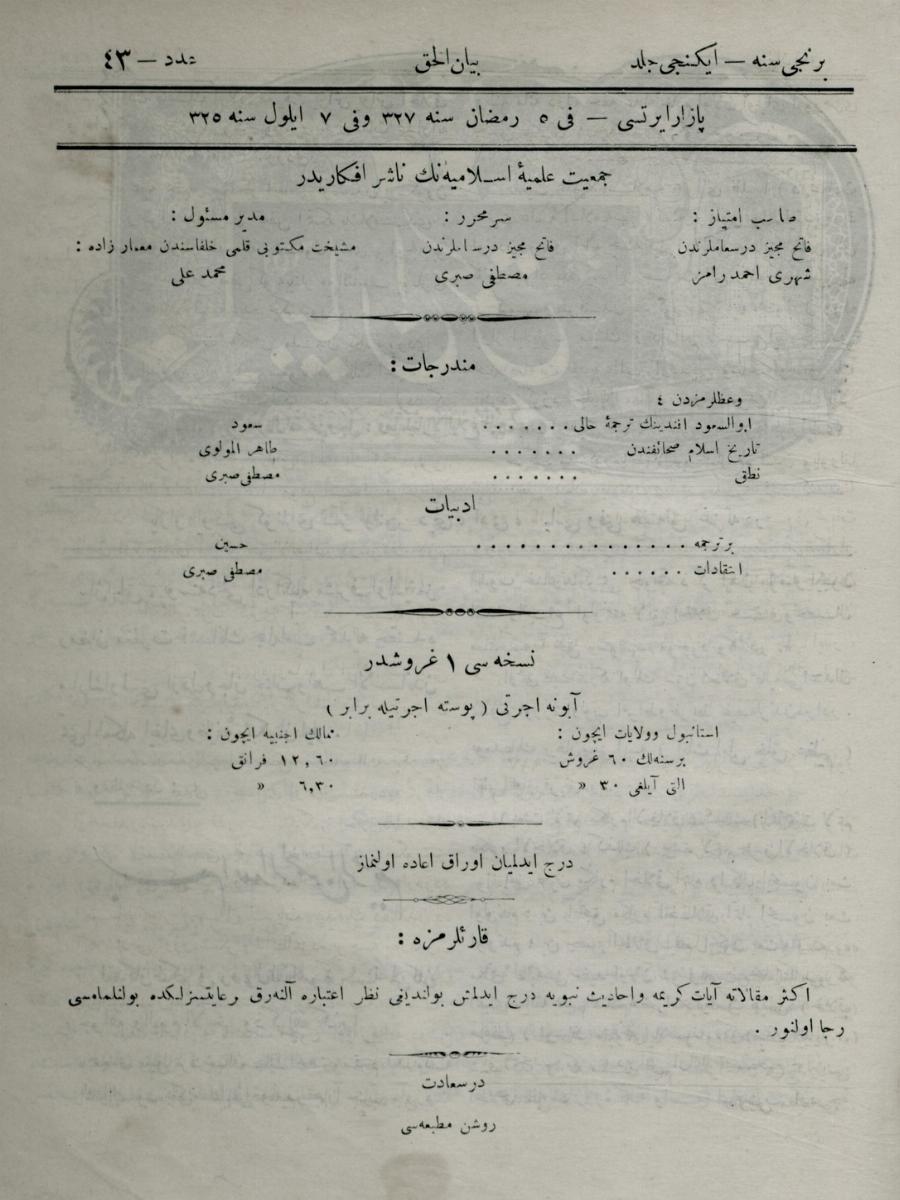 برنجی سنه — ایکنجی جلد بیان الحق عدد — ٤٣
پازارایرتسی — فی ٥ رمضان سنه ٣٢٧ وفی ٧ ایلول سنه ٣٢٥
جمعیت علمیهٔ اسلامیه‌نك ناشر افکاریدر
صاحب امتیاز : سرمحرر : مدیر مسئول :
فاتح مجیز درسعاملرندن فاتح مجیز درسعاملرندن مشیخت مکتوبی قلمی خلفاسندن معمار زاده :
شهری احمد رامز مصطفی صبری محمد علی
مندرجات :
وعظلرمزدن ٤
ابوالسعود افندینك ترجمهٔ حالی . . . . . . . سعود
تاریخ اسلام صحائفندن . . . . . . . طاهر المولوی
نطق . . . . . . . مصطفی صبری
ادبیات
برترجمه . . . . . . . . . . . . . . . . حسین
انتقادات . . . . . . مصطفی صبری
نسخه سی ١ غروشدر
آبونه اجرتی ( پوسته اجرتیله برابر )
استانبول وولایات ایچون : ممالك اجنبیه ایچون :
برسنه‌لك ٦٠ غروش ١٢,٦٠ فرانق
التی آیلغی ٣٠ » ٦,٣٠ »
درج ایدلمیان اوراق اعاده اولنماز
قارئلرمزه :
اکثر مقالاته آیات کریمه واحادیث نبویه درج ایدلمش بولندیغی نظر اعتباره آلنه‌رق رعایتسزلکده بولنلمامه‌سی
رجا اولنور .
درسعادت
روشن مطبعه‌سی